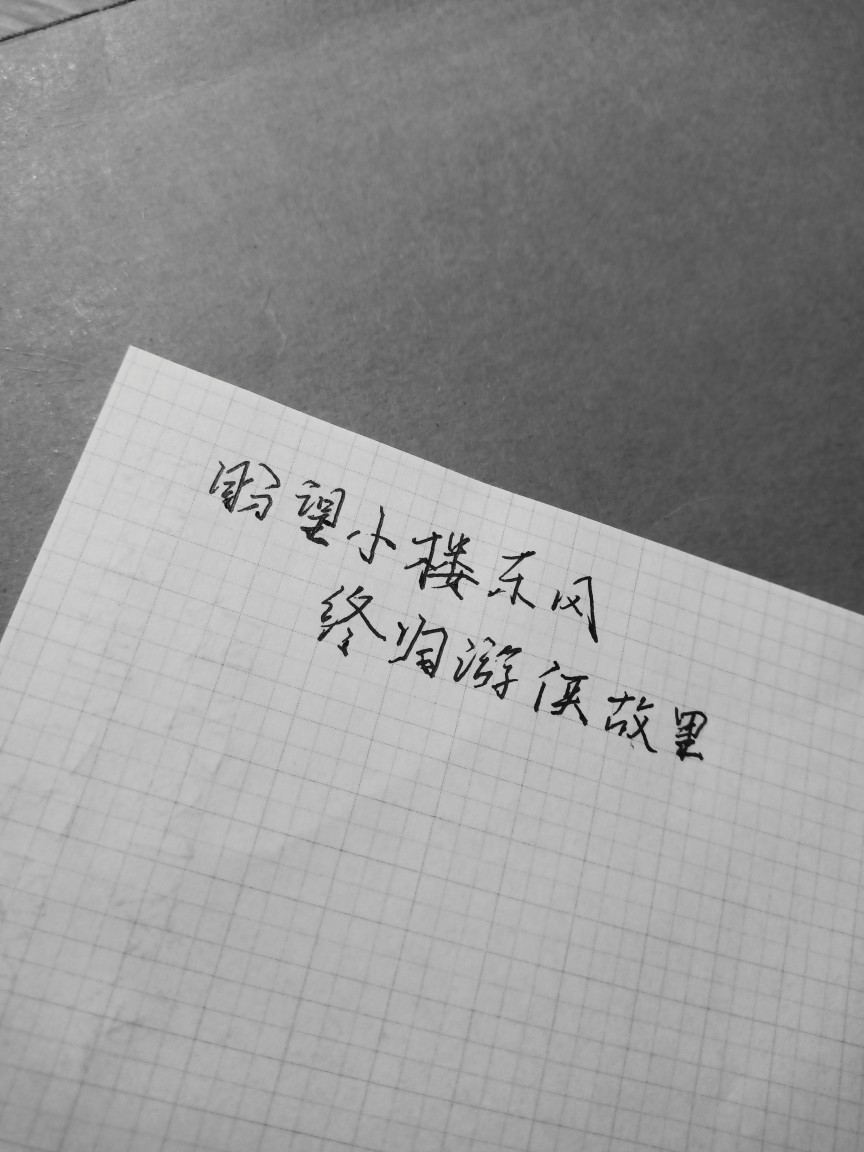 盼望小楼东风
终归游侠故里